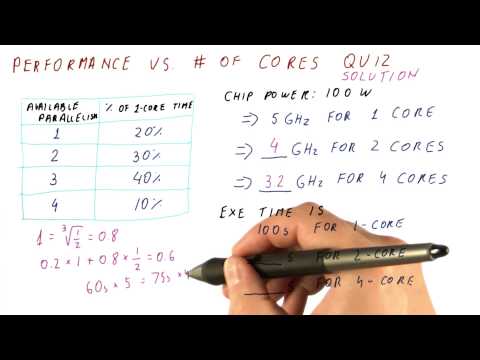 PERFORMANCE VS. # OF CORES QUIZ
SOLUTION
AVAILABLE PARALLELISM % OF 1-CORE TIME
1 20%
2 30%
3 40%
4 10%
1 = ∛(1/2) = 0.8
0.2 × 1 + 0.8 × 1/2 = 0.6
60s × 5 = 75s × 4
CHIP POWER: 100 W
=> 5 GHz FOR 1 CORE
=> 4 GHz FOR 2 CORES
=> 3.2 GHz FOR 4 CORES
EXE TIME IS
100s FOR 1-CORE
s FOR 2-CORE
s FOR 4-CORE